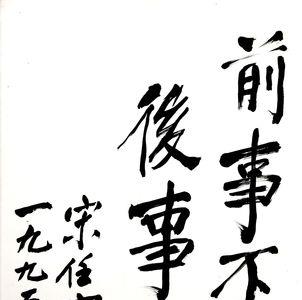 前事不
後事
宋任
一九九